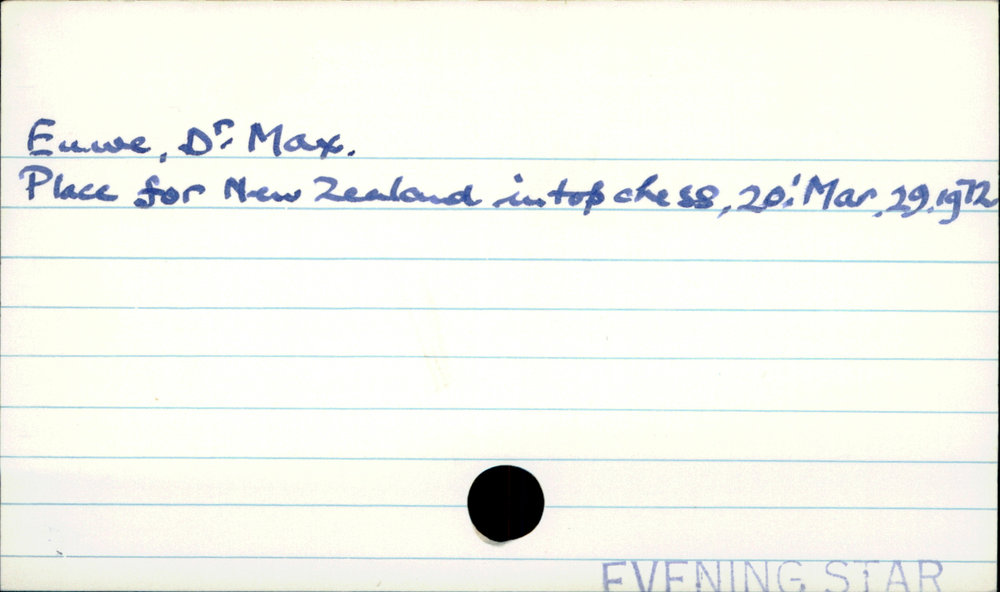 Euwe, Dr. Max.
Place for New Zealand in top chess, 20: Mar. 29. 1972
EVENING STAR